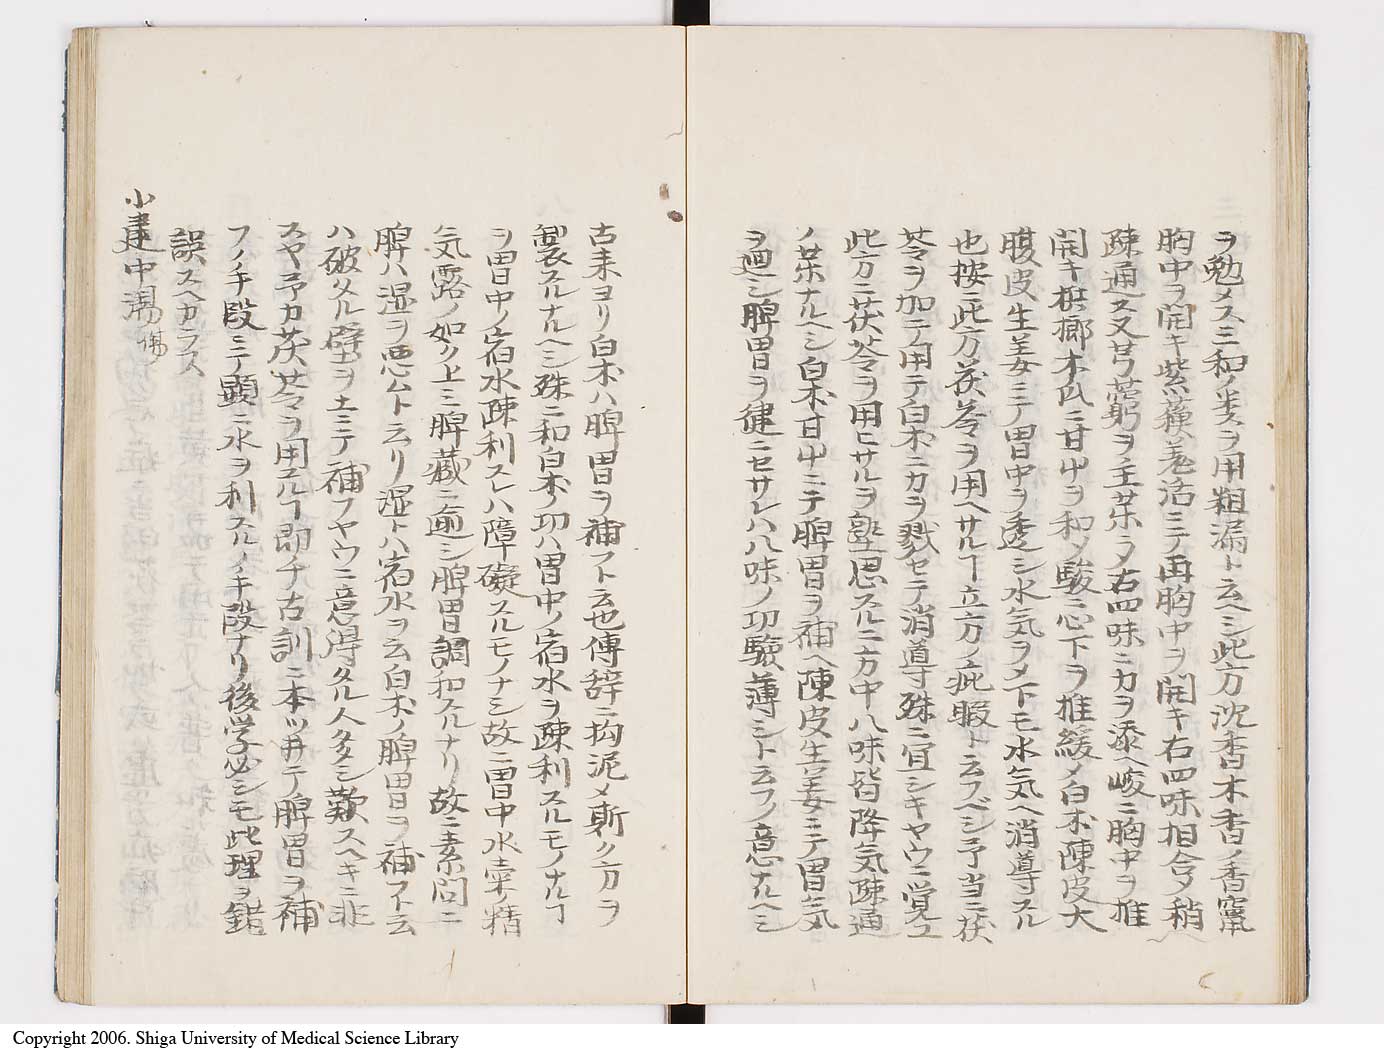 ヲ勉メス三和ノ類ヲ用粗漏ト云ヘシ此方沈香木香ノ香竄
胸中ヲ開キ紫蘓羌活ニテ再胸中ヲ開キ右四味相合〆稍
疎通ス又芎藭ヲ主薬ラ右四味ニカヲ添ヘ峻ニ胸中ヲ推
開キ梹榔木瓜ニ甘艸ヲ和ノ駿ニ心下ヲ推緩メ白朮陳皮大
腹皮生姜ニテ胃中ヲ透シ水気ヲメトモ水気ヘ消導スル
也按ニ此方茯苓ヲ用ヘサルヿ立方ノ疵瑕ト云フベシ予当ニ茯
苓ヲ加ニテ用テ白朮ニカヲ戮セテ消導殊ニ宜シキヤウニ覚ユ
此方ニ茯苓ヲ用ヒサルヲ塾思スルニ方中八味皆降気疎通
ノ薬ナルヘシ白朮甘艸ニテ脾胃ヲ補ヘ陳皮生姜ニテ胃気
ヲ廻シ脾胃ヲ健ニセサレハ八味ノ功驗薄シト云フノ意ナルヘシ
古来ヨリ白朮ハ脾胃ヲ補フト云也傳辞ニ拘泥メ斯ク方ヲ
製スルナルヘシ殊ニ和白朮ノ功ハ胃中ノ宿水ヲ疎利スルモノナルヿ
ヲ胃中ノ宿水疎利スレハ障礙スルモノナシ故ニ胃中水壷ノ精
気露ノ如ク上ニ脾蔵ニ逾シ脾胃調和スルナリ故ニ素問ニ
脾ハ湿ヲ悪ムト云リ湿トハ宿水ヲ云白朮ノ脾胃ヲ補フト云
ハ破タル壁ヲ土ニテ補フヤウニ意得タル人多シ歎スヘキニ非
スヤ予カ茯苓ヲ用ユルヿ即チ古訓ニ本ツ井テ脾胃ヲ補
フノ手段ニテ顕ニ水ヲ利スルノ手段ナリ後学必シモ此理ヲ錯
誤スヘカラス
小建中湯 傷
Copyright 2006. Shiga University of Medical Science Library